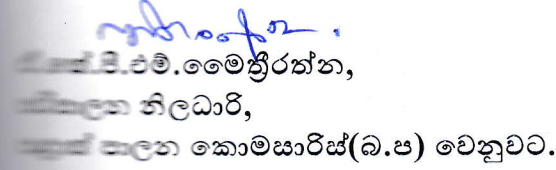 පී.එම්.මෛත්‍රීරත්න,
නිලධාරි,
පාලන කොමසාරිස්(බ.ප) වෙනුවට.